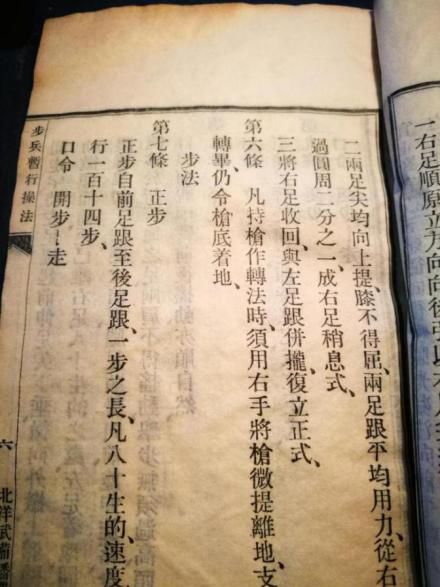 一右足順原立方向向後
二兩足尖均向上提、膝不得屈、兩足跟平均用力、從右
過圓周二分之一、成右足稍息式、
三將右足收回、與左足跟併攏、復立正式、
第六條　凡持槍作轉法時、須用右手將槍微提離地、支
轉畢仍令槍底着地、
步法
第七條　正步
正步自前足跟至後足跟、一步之長、凡八十生的、速度
行一百十四步、
口令　開步—走
步兵暫行操法
六
北洋武備